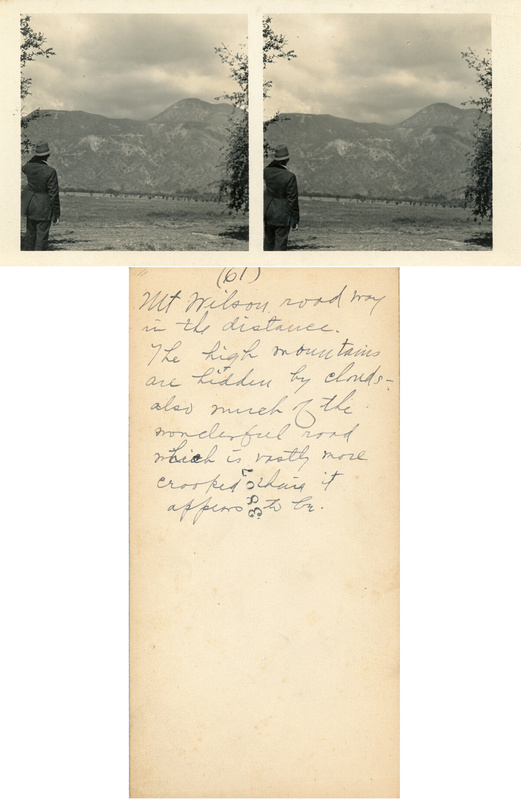 (61)
Mt Wilson road way
in the distance.
The high mountains
are hidden by clouds-
also much of the
wonderful road
which is vastly more
crooked than it
appears to be.
3857